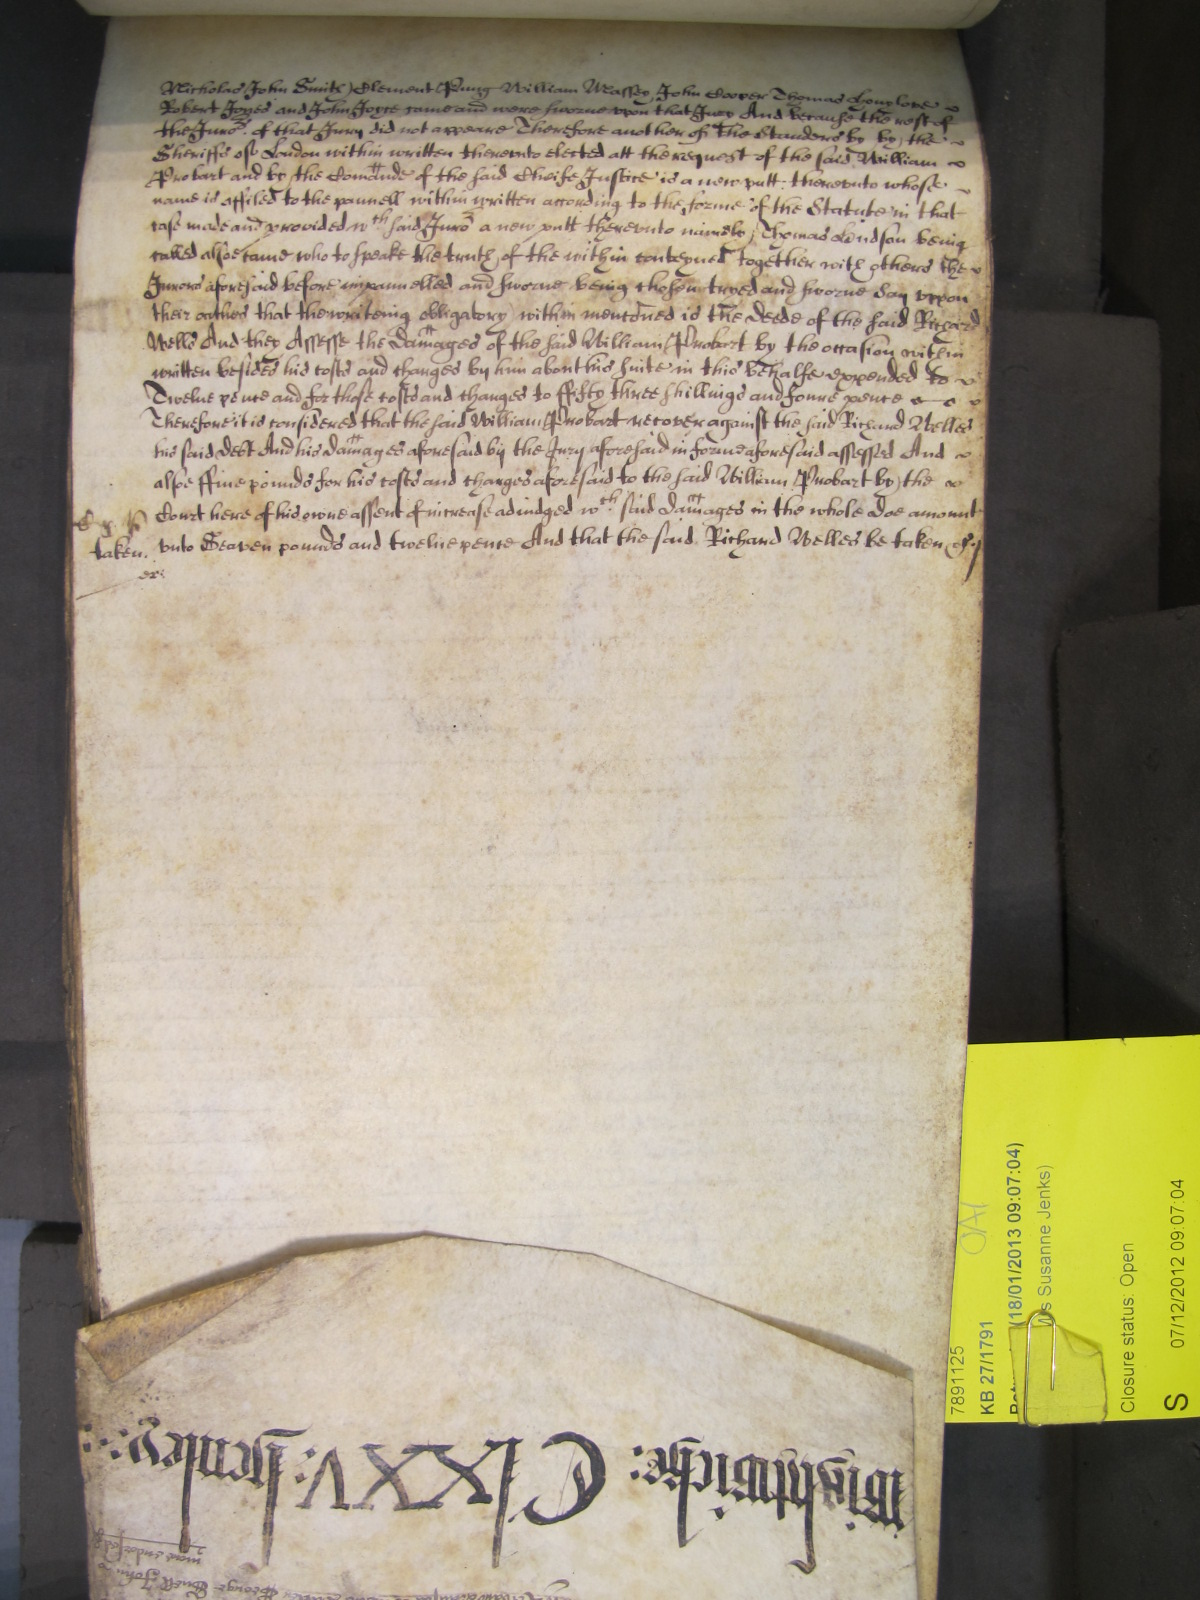 Nicholas John Smith Clement Pung William Massey John Cooper Thomas
Robert Joyes and John Joyce came and were sworne vpon that Jury And because the rest of
the Juro:s of that Jury did not appeare Therefore another of the Standers by by the
Sheriffs of London within written therevnto elected att the request of the said William
Probart and by the Comande of the said Cheife Justice is a new putt therevnto whose
name is affiled to the pannell within written according to the forme of the Statute in that
case made and provided wth said Juro a new putt therevnto namely Thomas Lindson being
called alsoe came who to speake the truth of the within conteyned together with others the
Jurors aforesaid before impannelled and sworne being chosen tryed and sworne Say vpon
their oathes that the writeing obligatory within mentoned is the deede of the said Richard
Wells And they Assesse the damages of the said William Probart by the occasion within
written besides his costs and charges by him about his suite in this behalfe expended to
Twelve pence and for those costs and charges to ffifty three shillings and foure pence
Therefore it is considered that the said William Probart recover against the said Richard Welles
his said debt And his damages aforesaid by the Jury aforesaid in forme aforesaid assessed And
alsoe ffive pounds for his costs and charges aforesaid to the said William Probart by the
Court here of his owne assent of increase adiudged wch: said damages in the whole doe amount
taken. vnto Seaven pounds and twelve pence And that the said Richard Welles be taken &c
er:
7891125
KB 27/1791
(18/01/2013 09:07:04)
Susanne Jenks)
Closure status: Open
S 07/12/2012 09:07:04
Wightwicke: ClXXV: Henley: